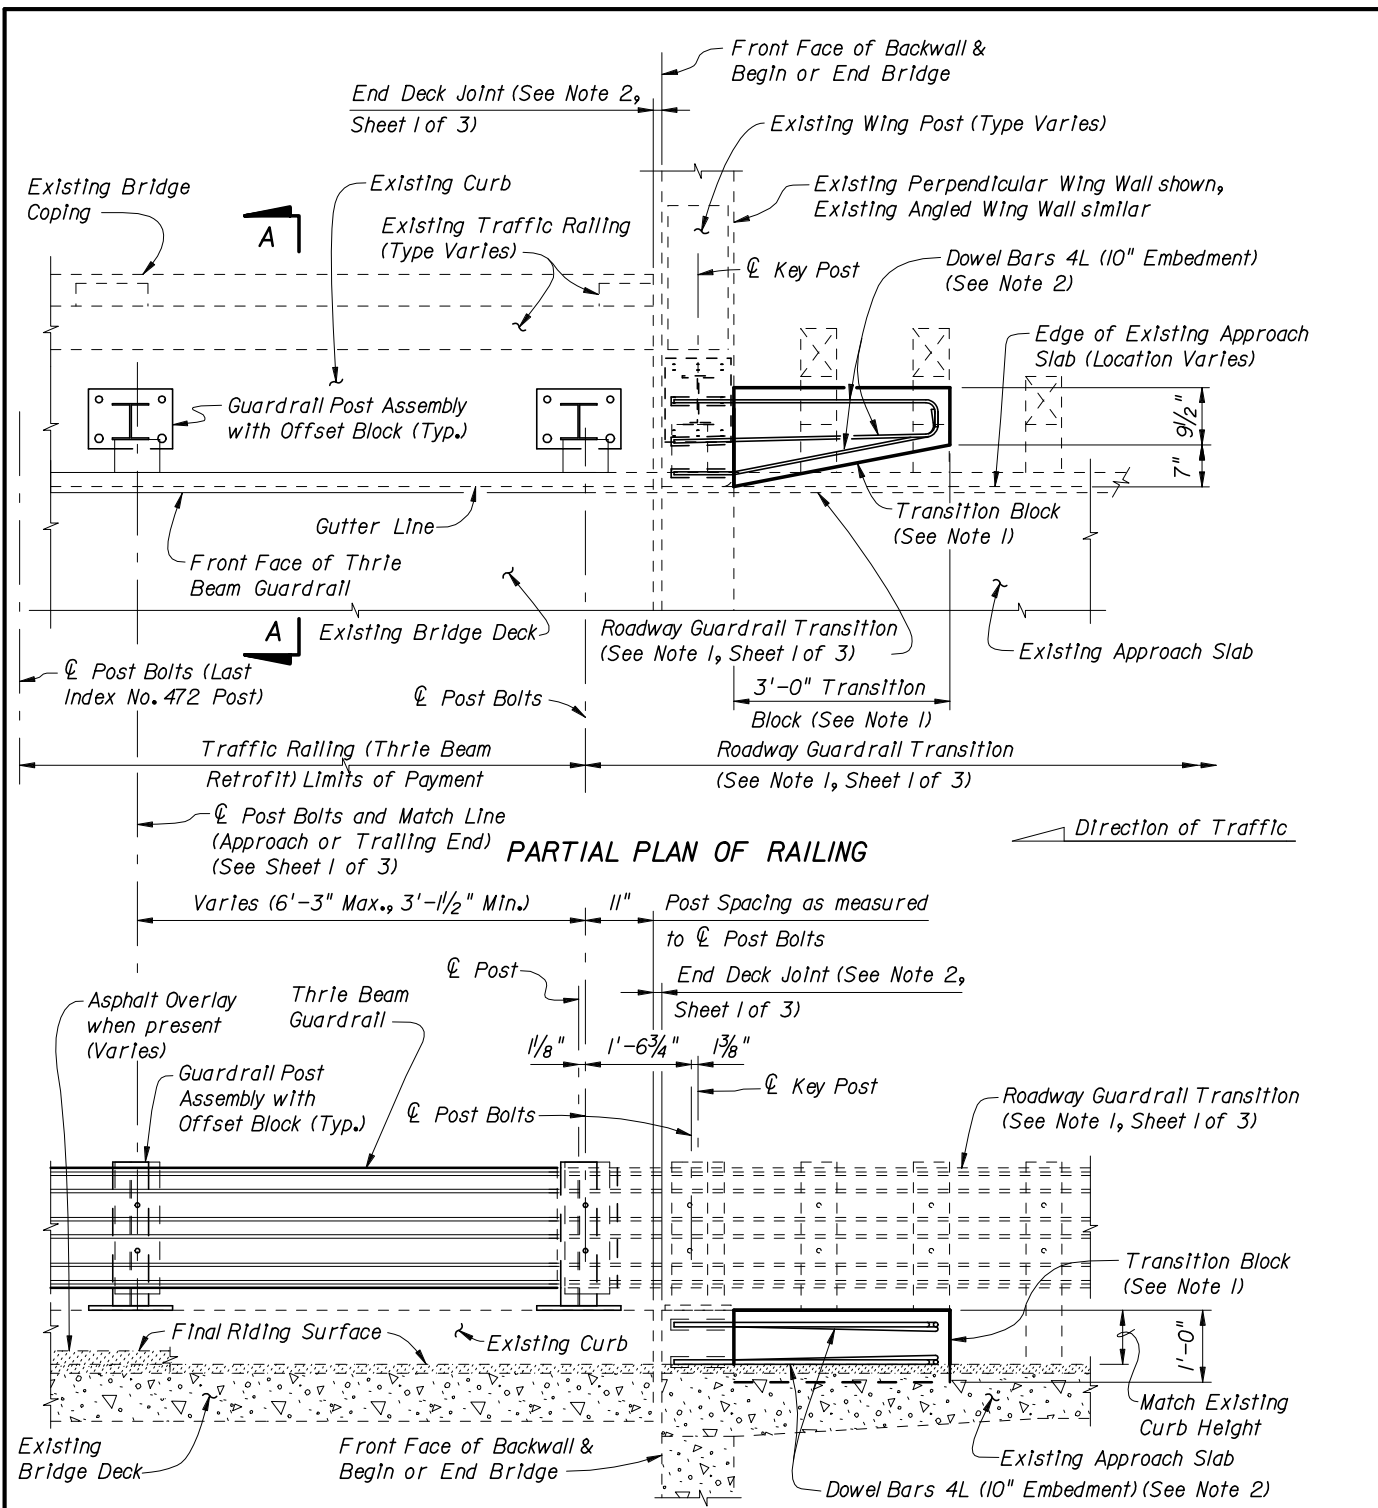 Front Face of Backwall &
Begin or End Bridge
End Deck Joint (See Note 2,
Sheet 1 of 3)
Existing Wing Post (Type Varies)
Existing Bridge
Coping
Existing Curb
Existing Perpendicular Wing Wall shown,
Existing Angled Wing Wall similar
A
Existing Traffic Railing
(Type Varies)
℄ Key Post
Dowel Bars 4L (10" Embedment)
(See Note 2)
Edge of Existing Approach
Slab (Location Varies)
Guardrail Post Assembly
with Offset Block (Typ.)
9½"
7"
Transition Block
(See Note 1)
Gutter Line
Front Face of Thrie
Beam Guardrail
A
Existing Bridge Deck
Roadway Guardrail Transition
(See Note 1, Sheet 1 of 3)
Existing Approach Slab
℄ Post Bolts (Last
Index No. 472 Post)
℄ Post Bolts
3'-0" Transition
Block (See Note 1)
Traffic Railing (Thrie Beam
Retrofit) Limits of Payment
Roadway Guardrail Transition
(See Note 1, Sheet 1 of 3)
℄ Post Bolts and Match Line
(Approach or Trailing End)
(See Sheet 1 of 3)
Direction of Traffic
PARTIAL PLAN OF RAILING
Varies (6'-3" Max., 3'-1½" Min.)
11"
Post Spacing as measured
to ℄ Post Bolts
℄ Post
End Deck Joint (See Note 2,
Sheet 1 of 3)
Asphalt Overlay
when present
(Varies)
Thrie Beam
Guardrail
1⅛"
1'-6¾"
1⅜"
Guardrail Post
Assembly with
Offset Block (Typ.)
℄ Post Bolts
℄ Key Post
Roadway Guardrail Transition
(See Note 1, Sheet 1 of 3)
Transition Block
(See Note 1)
Final Riding Surface
Existing Curb
1'-0"
Match Existing
Curb Height
Existing
Bridge Deck
Front Face of Backwall &
Begin or End Bridge
Existing Approach Slab
Dowel Bars 4L (10" Embedment) (See Note 2)